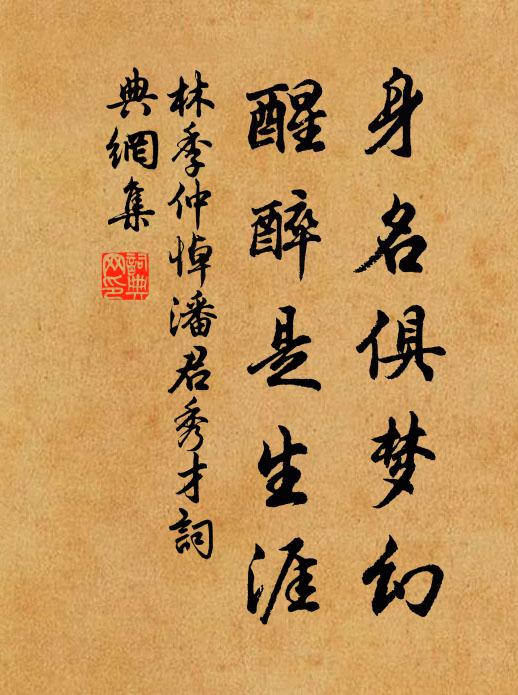 身名俱梦幻
醒醉是生涯
林季仲悼潘君秀才詞
典網集
詞典网印